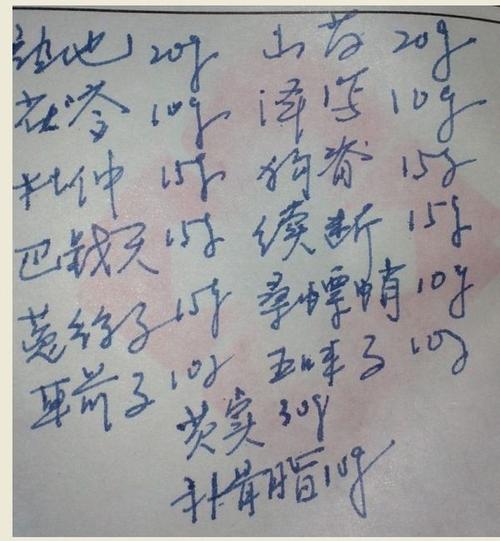 熟地 20g 山药 20g
茯苓 10g 泽泻 10g
杜仲 15g 狗脊 15g
巴戟天 15g 续断 15g
菟丝子 15g 桑螵蛸 10g
车前子 10g 五味子 10g
芡实 30g
补骨脂 10g